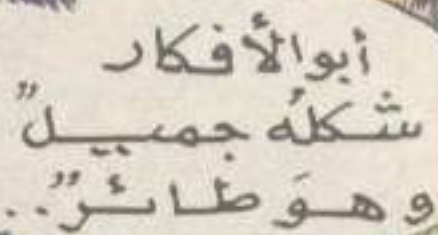 أبو الأفكار
شكلُه جميــيلٌ
وهـوَ طـائـرٌ..